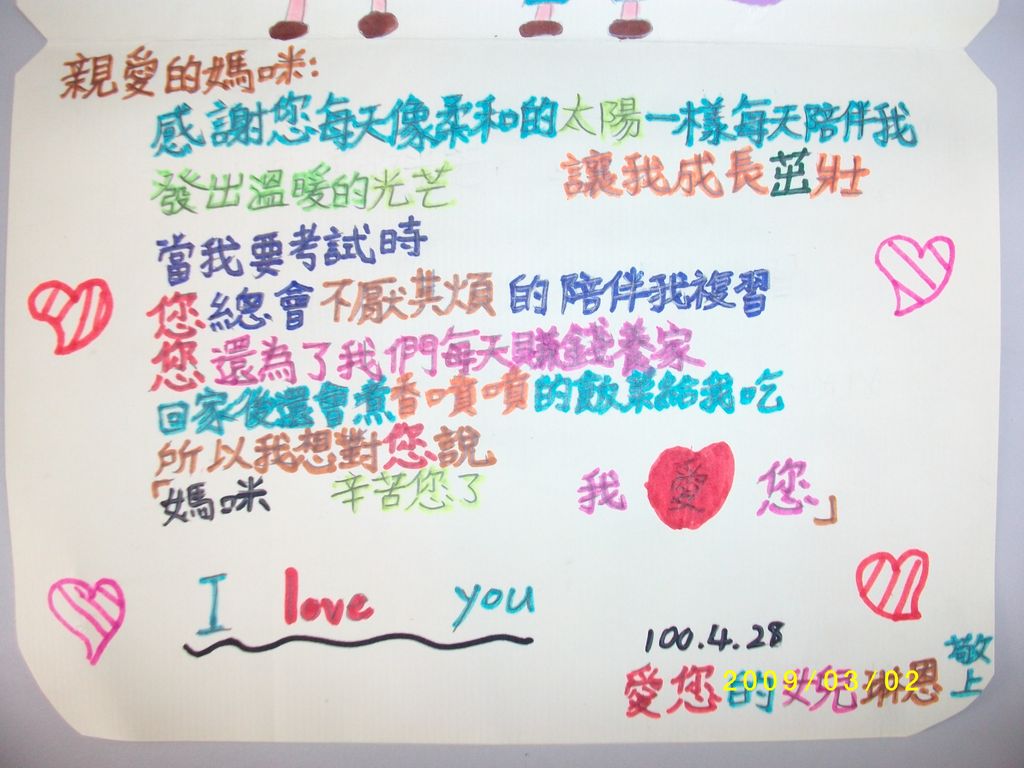 親愛的媽咪:
感謝您每天像柔和的太陽一樣每天陪伴我
發出溫暖的光芒 讓我成長茁壯
當我要考試時
您總會不厭其煩的陪伴我複習
您還為了我們每天賺錢養家
回家後還會煮香噴噴的飯菜給我吃
所以我想對您說
「媽咪 辛苦您了 我愛您」
I love you
100.4.28
愛您的女兒琳恩敬上
2009/03/02